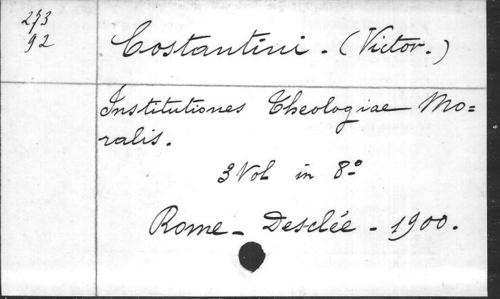 273
92
Costantini. (Victor.)
Institutiones Theologiae Mo=
ralis.
3 Vol in 8º
Rome - Desclée - 1900.